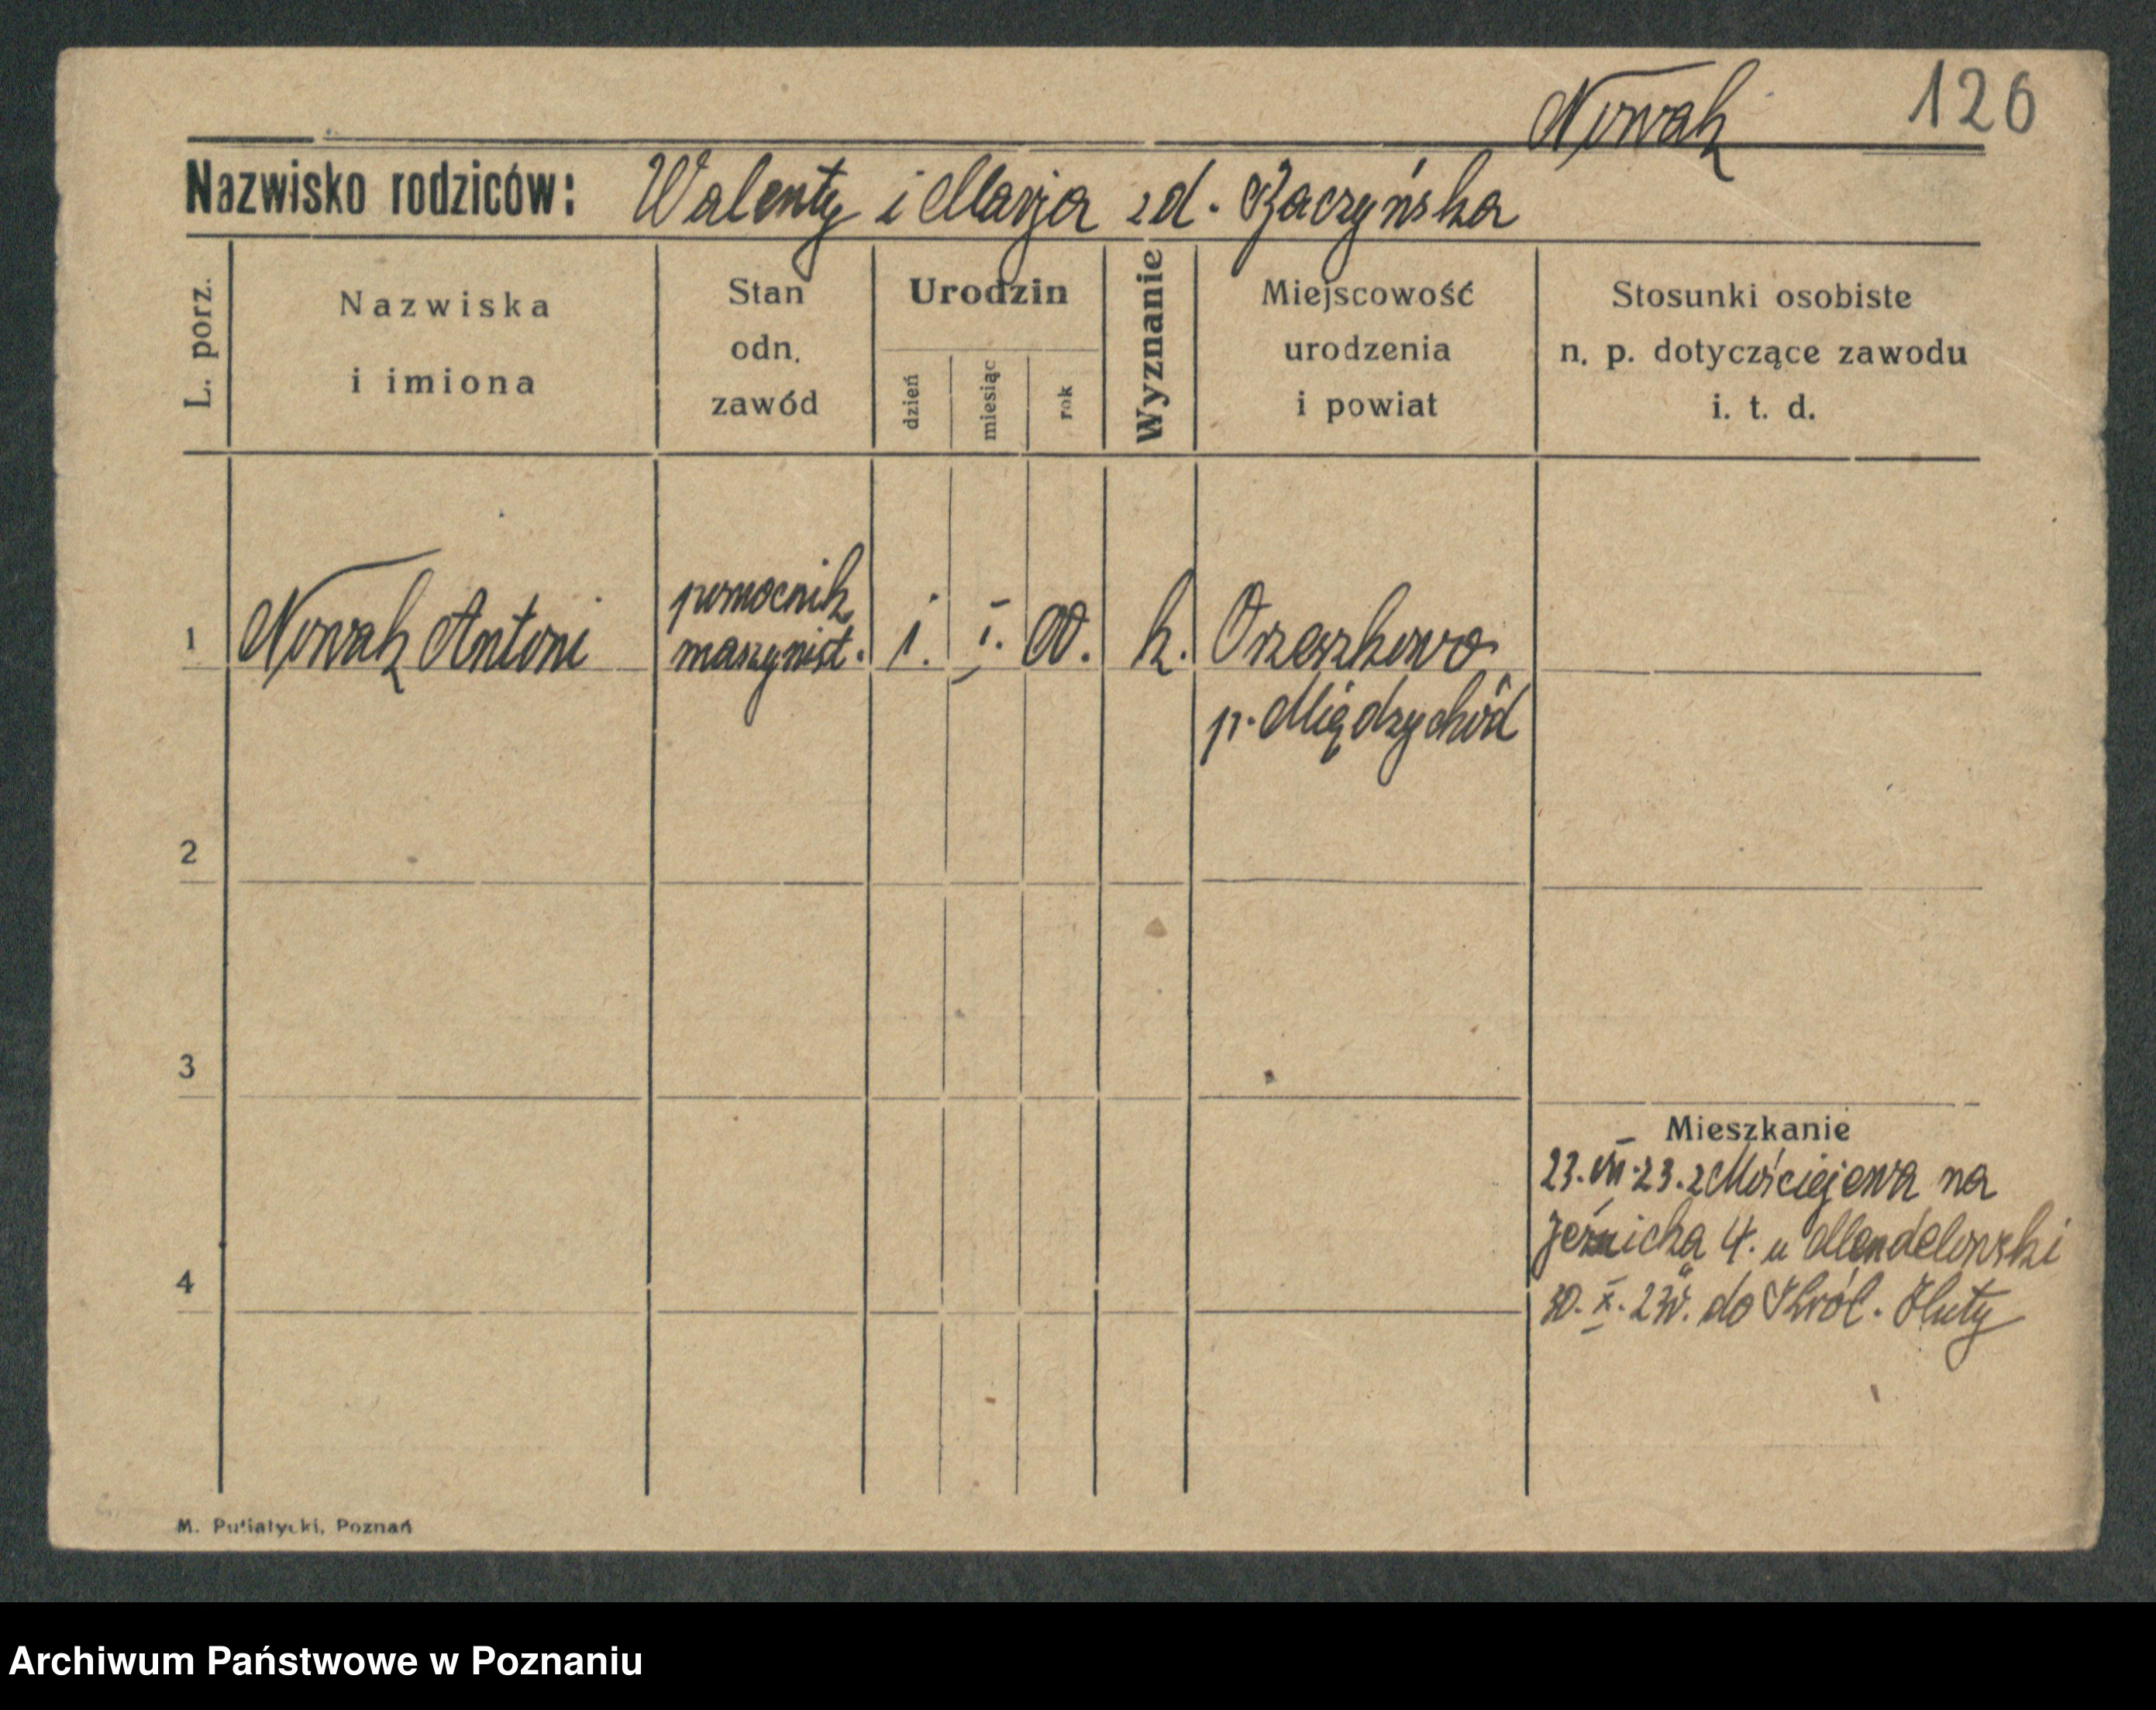 Nowak 126
Nazwisko rodziców: Walenty i Marja zd. Raczyńska
L. porz.
Nazwiska
i imiona
Stan
odn.
zawód
Urodzin
dzień
miesiąc
rok
Wyznanie
Miejscowość
urodzenia
i powiat
Stosunki osobiste
n. p. dotyczące zawodu
i. t. d.
1 Nowak Antoni pomocnik
maszynist. 1. I. 00. k. Orzeszkowo
p. Międzychód
2
3
4
Mieszkanie
23. VII. 23. z Mościejewa na
4. u Mendelowski
30. X. 23 do Król. Huty
M. Putiatycki, Poznań
Archiwum Państwowe w Poznaniu